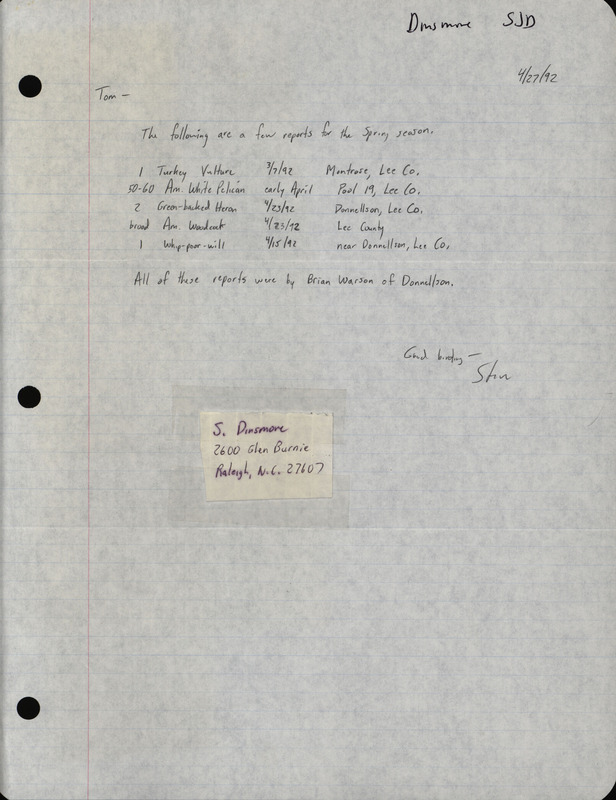 Dinsmore SJD
4/27/92
Tom -
The following are a few reports for the Spring season.
1 Turkey Vulture 3/7/92 Montrose, Lee Co.
50-60 Am. White Pelican early April Pool 19, Lee Co.
2 Green-backed Heron 4/23/92 Donnellson, Lee Co.
brood Am. Woodcock 4/23/92 Lee County
1 Whip-poor-will 4/15/92 near Donnellson, Lee Co.
All of these reports were by Brian Warson of Donnellson.
Good birding -
Steve
S. Dinsmore
2600 Glen Burnie
Raleigh, N.C. 27607